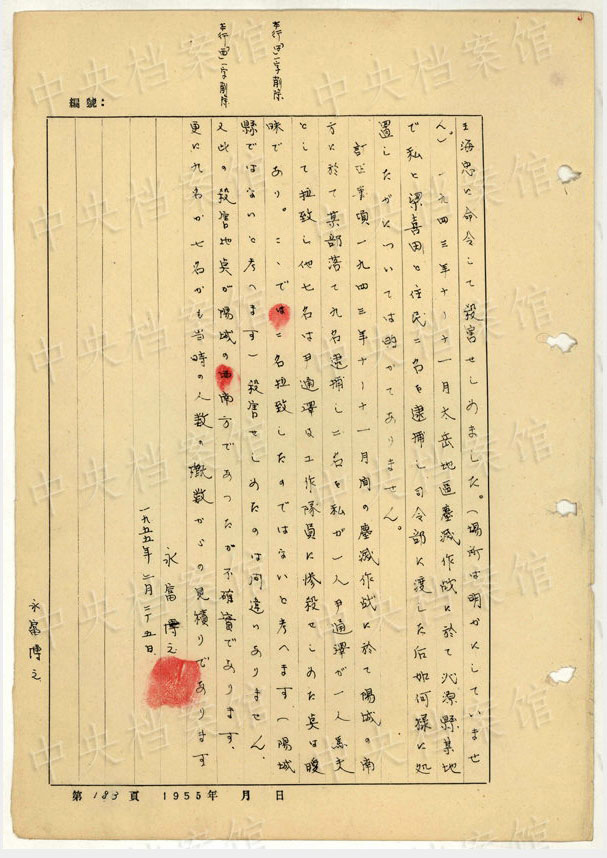 本行「西」一字削除
本行「曲」一字削除
編號：
王海忠に命令して殺害せしめました。（場所は明かにしていませ
ん。）一九四三年十〜十一月太岳地區塵滅作戦に於て沁源縣某地
で私と梁喜田と住民二名を逮捕し司令部に渡した后如何様に処
置したかについては明かでありません。
訂正事項一九四三年十〜十一月間の塵滅作戦に於て陽城の南
方に於て某部落で九名逮捕し二名を私が一人尹通譯が一人馬丈
として拉致し他七名は尹通譯及工作隊員に惨殺せしめた点は曖
昧であり。こゝでは二名拉致したのではないと考へます（陽城
縣ではないと考へます）殺害せしめたのは間違いありません。
又此の殺害地点が陽城の南方であつたか不確實であります。
更に九名か七名かも当時の人数の概数からの見積りであります
永富博之
一九五五年二月二十五日
永富博之
第183頁 1955年 月 日
中央档案馆